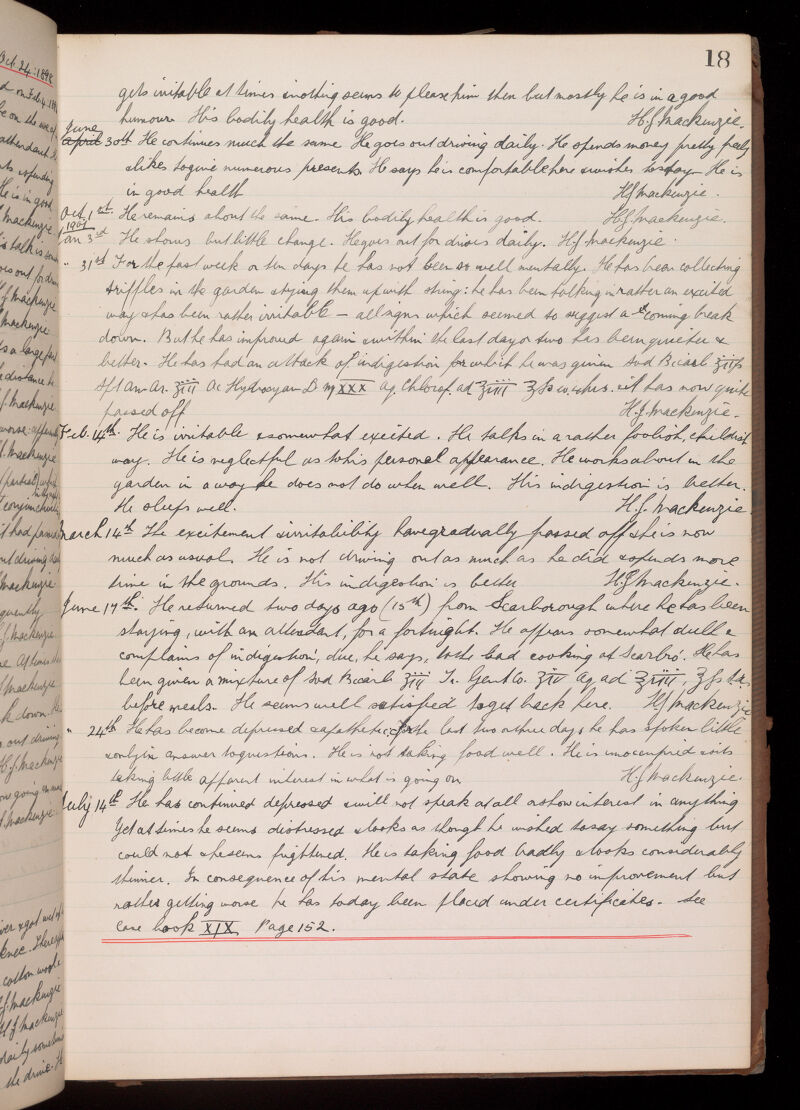 18
gets irritable at times & nothing seems to please him then but mostly he is in a good
humour. His bodily health is good. H.J. Mackenzie.
June
April 30th He continues much the same. He goes out driving daily. He spends money pretty freely
& likes to give numerous presents. He says he is comfortable here & wishes to stay. He is
in good health H.J. Mackenzie.
Oct. 1st. He remains about the same. His bodily health is good. H.J. Mackenzie.
1901
Jan 3rd He shows but little change. He goes out for drives daily. H.J. Mackenzie.
" 31st For the past week or ten days he has not been so well mentally. He has been collecting
triffles in the garden & tying them up with string: he has been talking in rather an excited
way & has been rather irritable – all signs which seemed to suggest a coming break
down. But he has improved again & within the last day or two has been quieter &
better. He has had an attack of indigestion for which he was given Sod Bicarb
Ac Hydrocyan D ♏ XXX Aq. Chlorof. ad & it has now quite
passed off H.J. Mackenzie.
Feb. 14th. He is irritable & somewhat excited. He talks in a rather foolish, childish
way. He is neglectful as to his personal appearance. He works about in the
garden in a way he does not do when well. His indigestion is better.
He sleeps well. H.J. Mackenzie
March 14th The excitement & irritability have gradually passed off & he is now
much as usual. He is not driving out as much as he did & spends more
time in the grounds. His indigestion is better H.J. Mackenzie.
June 17th. He returned two days ago (15th) from Scarborough where he has been
staying, with an attendant, for a fortnight. He appears somewhat dull &
complains of indigestion, due, he says, to the bad cooking at Scarbro'. He has
been given a mixture of Sod Bicarb Tr. Gent Co. Aq ad
before meals. He seems well satisfied to get back here. H.J. Mackenzie
" 24th He has become depressed & apathetic. For the last two or three days he has spoken little
& only in answer to questions. He is not taking food well. He is unoccupied & sits
taking little apparent interest in what is going on H.J. Mackenzie.
July 14th He has continued depressed & will not speak at all or show interest in anything
Yet at times he seems distressed & looks as though he wished to say something but
could not & he seems frightened. He is taking food badly & looks considerably
thinner. In consequence of his mental state showing no improvement but
rather getting worse he has today been placed under certificates. See
Case book XIX Page 152.